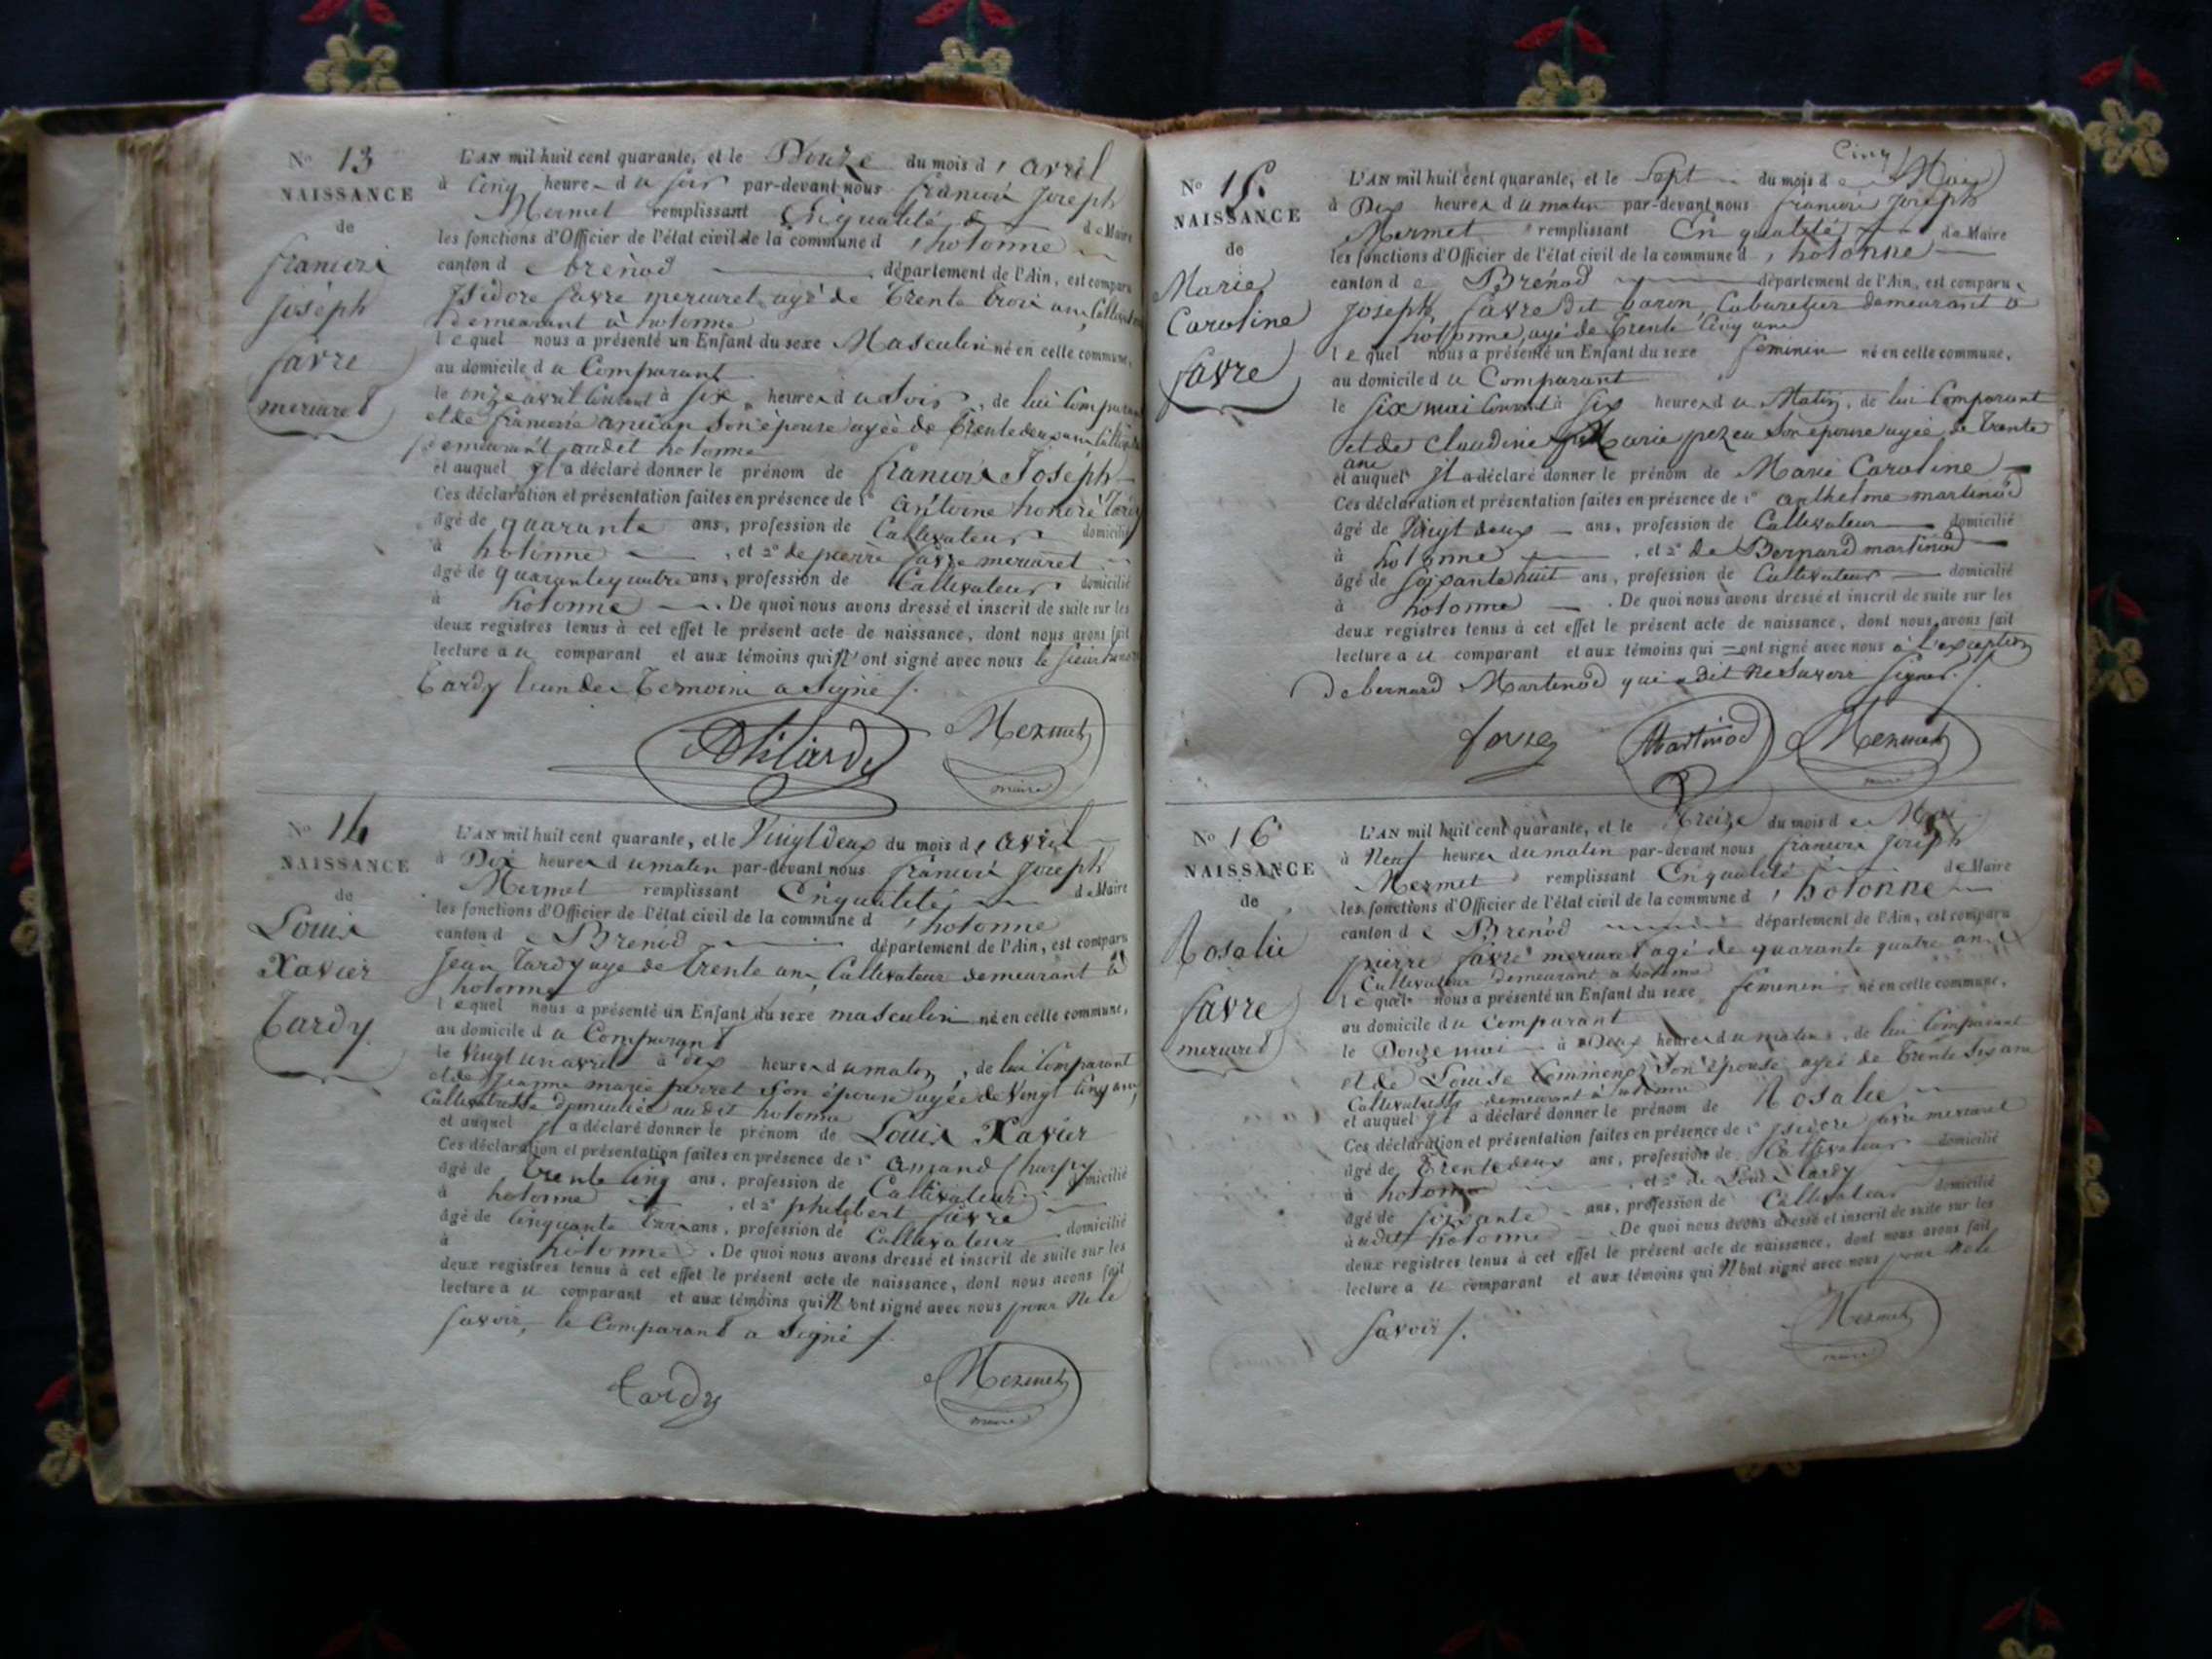 N° 13
NAISSANCE
de
francois
joseph
favre
mercuret
L'AN mil huit cent quarante, et le Douze du mois d'avril
à cinq heures du soir par-devant nous francois joseph
Mermet remplissant En qualité de Maire
les fonctions d'Officier de l'état civil de la commune d'hotonne
canton de brenod département de l'Ain, est comparu
Isidore favre mercuret agé de trente trois ans
demeurant à hotonne
lequel nous a présenté un Enfant du sexe Masculin né en cette commune,
au domicile du Comparant
le onze avril courant à six heures du soir, de lui Comparant
et de francoise son épouse agée de trente deux ans
demeurant audit hotonne
et auquel il a déclaré donner le prénom de francois Joseph
Ces déclaration et présentation faites en présence de 1° antoine honoré
âgé de quarante ans, profession de Cultivateur domicilié
à hotonne, et 2° de pierre favre mercuret
âgé de quarante quatre ans, profession de Cultivateur domicilié
à hotonne. De quoi nous avons dressé et inscrit de suite sur les
deux registres tenus à cet effet le présent acte de naissance, dont nous avons fait
lecture au comparant et aux témoins qui n'ont signé avec nous le sieur
tardy l'un des temoins a signé
Mermet
maire
N° 14
NAISSANCE
de
Louis
Xavier
tardy
L'AN mil huit cent quarante, et le Vingt deux du mois d'avril
à Dix heures du matin par-devant nous francois joseph
Mermet remplissant En qualité de Maire
les fonctions d'Officier de l'état civil de la commune d'hotonne
canton de Brenod département de l'Ain, est comparu
Jean tardy agé de trente ans, Cultivateur demeurant à
hotonne
lequel nous a présenté un Enfant du sexe masculin né en cette commune,
au domicile du Comparant
le vingt un avril à dix heures du matin, de lui Comparant
et de jeanne marie perret son épouse agée de vingt cinq ans,
Cultivatrice domiciliée audit hotonne
et auquel il a déclaré donner le prénom de Louis Xavier
Ces déclaration et présentation faites en présence de 1° amand
âgé de trente cinq ans, profession de Cultivateur domicilié
à hotonne, et 2° philibert favre
âgé de cinquante trois ans, profession de Cultivateur domicilié
à hotonne. De quoi nous avons dressé et inscrit de suite sur les
deux registres tenus à cet effet le présent acte de naissance, dont nous avons fait
lecture au comparant et aux témoins qui n'ont signé avec nous pour ne le
savoir, le Comparant a signé
tardy
Mermet
maire
Cinq
N° 15
NAISSANCE
de
Marie
Caroline
favre
L'AN mil huit cent quarante, et le Sept du mois de Mai
à Dix heures du matin par-devant nous francois joseph
Mermet remplissant En qualité de Maire
les fonctions d'Officier de l'état civil de la commune d'hotonne
canton de Brenod département de l'Ain, est comparu
joseph favre dit baron, Cabaretier demeurant à
hotonne, agé de trente cinq ans
lequel nous a présenté un Enfant du sexe feminin né en cette commune,
au domicile du Comparant
le six mai courant à six heures du Matin, de lui Comparant
et de claudine Marie pezeu son épouse agée de trente
ans
et auquel il a déclaré donner le prénom de Marie Caroline
Ces déclaration et présentation faites en présence de 1° anthelme martinod
âgé de vingt deux ans, profession de Cultivateur domicilié
à hotonne, et 2° de Bernard martinod
âgé de soixante huit ans, profession de Cultivateur domicilié
à hotonne. De quoi nous avons dressé et inscrit de suite sur les
deux registres tenus à cet effet le présent acte de naissance, dont nous avons fait
lecture au comparant et aux témoins qui ont signé avec nous à l'exception
de bernard Martinod qui a dit ne savoir signer
favre
Martinod
Mermet
maire
N° 16
NAISSANCE
de
Rosalie
favre
mercuret
L'AN mil huit cent quarante, et le treize du mois de Mai
à Neuf heures du matin par-devant nous francois joseph
Mermet remplissant En qualité de Maire
les fonctions d'Officier de l'état civil de la commune d'hotonne
canton de Brenod département de l'Ain, est comparu
pierre favre mercuret agé de quarante quatre ans
Cultivateur demeurant a hotonne
lequel nous a présenté un Enfant du sexe femenin né en cette commune,
au domicile du Comparant
le Douze mai à Deux heures du matin, de lui Comparant
et de Louise son épouse agée de trente six ans
Cultivatrice demeurant à hotonne
et auquel il a déclaré donner le prénom de Rosalie
Ces déclaration et présentation faites en présence de 1° isidore favre mercuret
âgé de trente deux ans, profession de Cultivateur domicilié
à hotonne, et 2° de Louis tardy
âgé de soixante ans, profession de Cultivateur domicilié
audit hotonne. De quoi nous avons dressé et inscrit de suite sur les
deux registres tenus à cet effet le présent acte de naissance, dont nous avons fait
lecture au comparant et aux témoins qui n'ont signé avec nous pour ne le
savoir
Mermet
maire